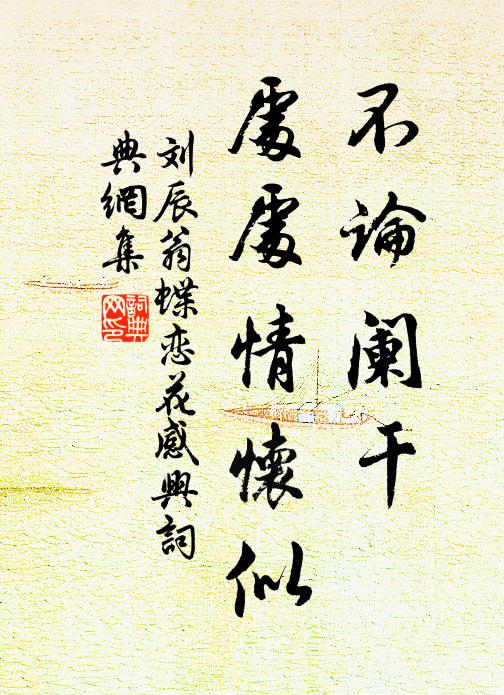 不论阑干
处处情怀似
刘辰翁蝶恋花感兴词
典网集
词典网印